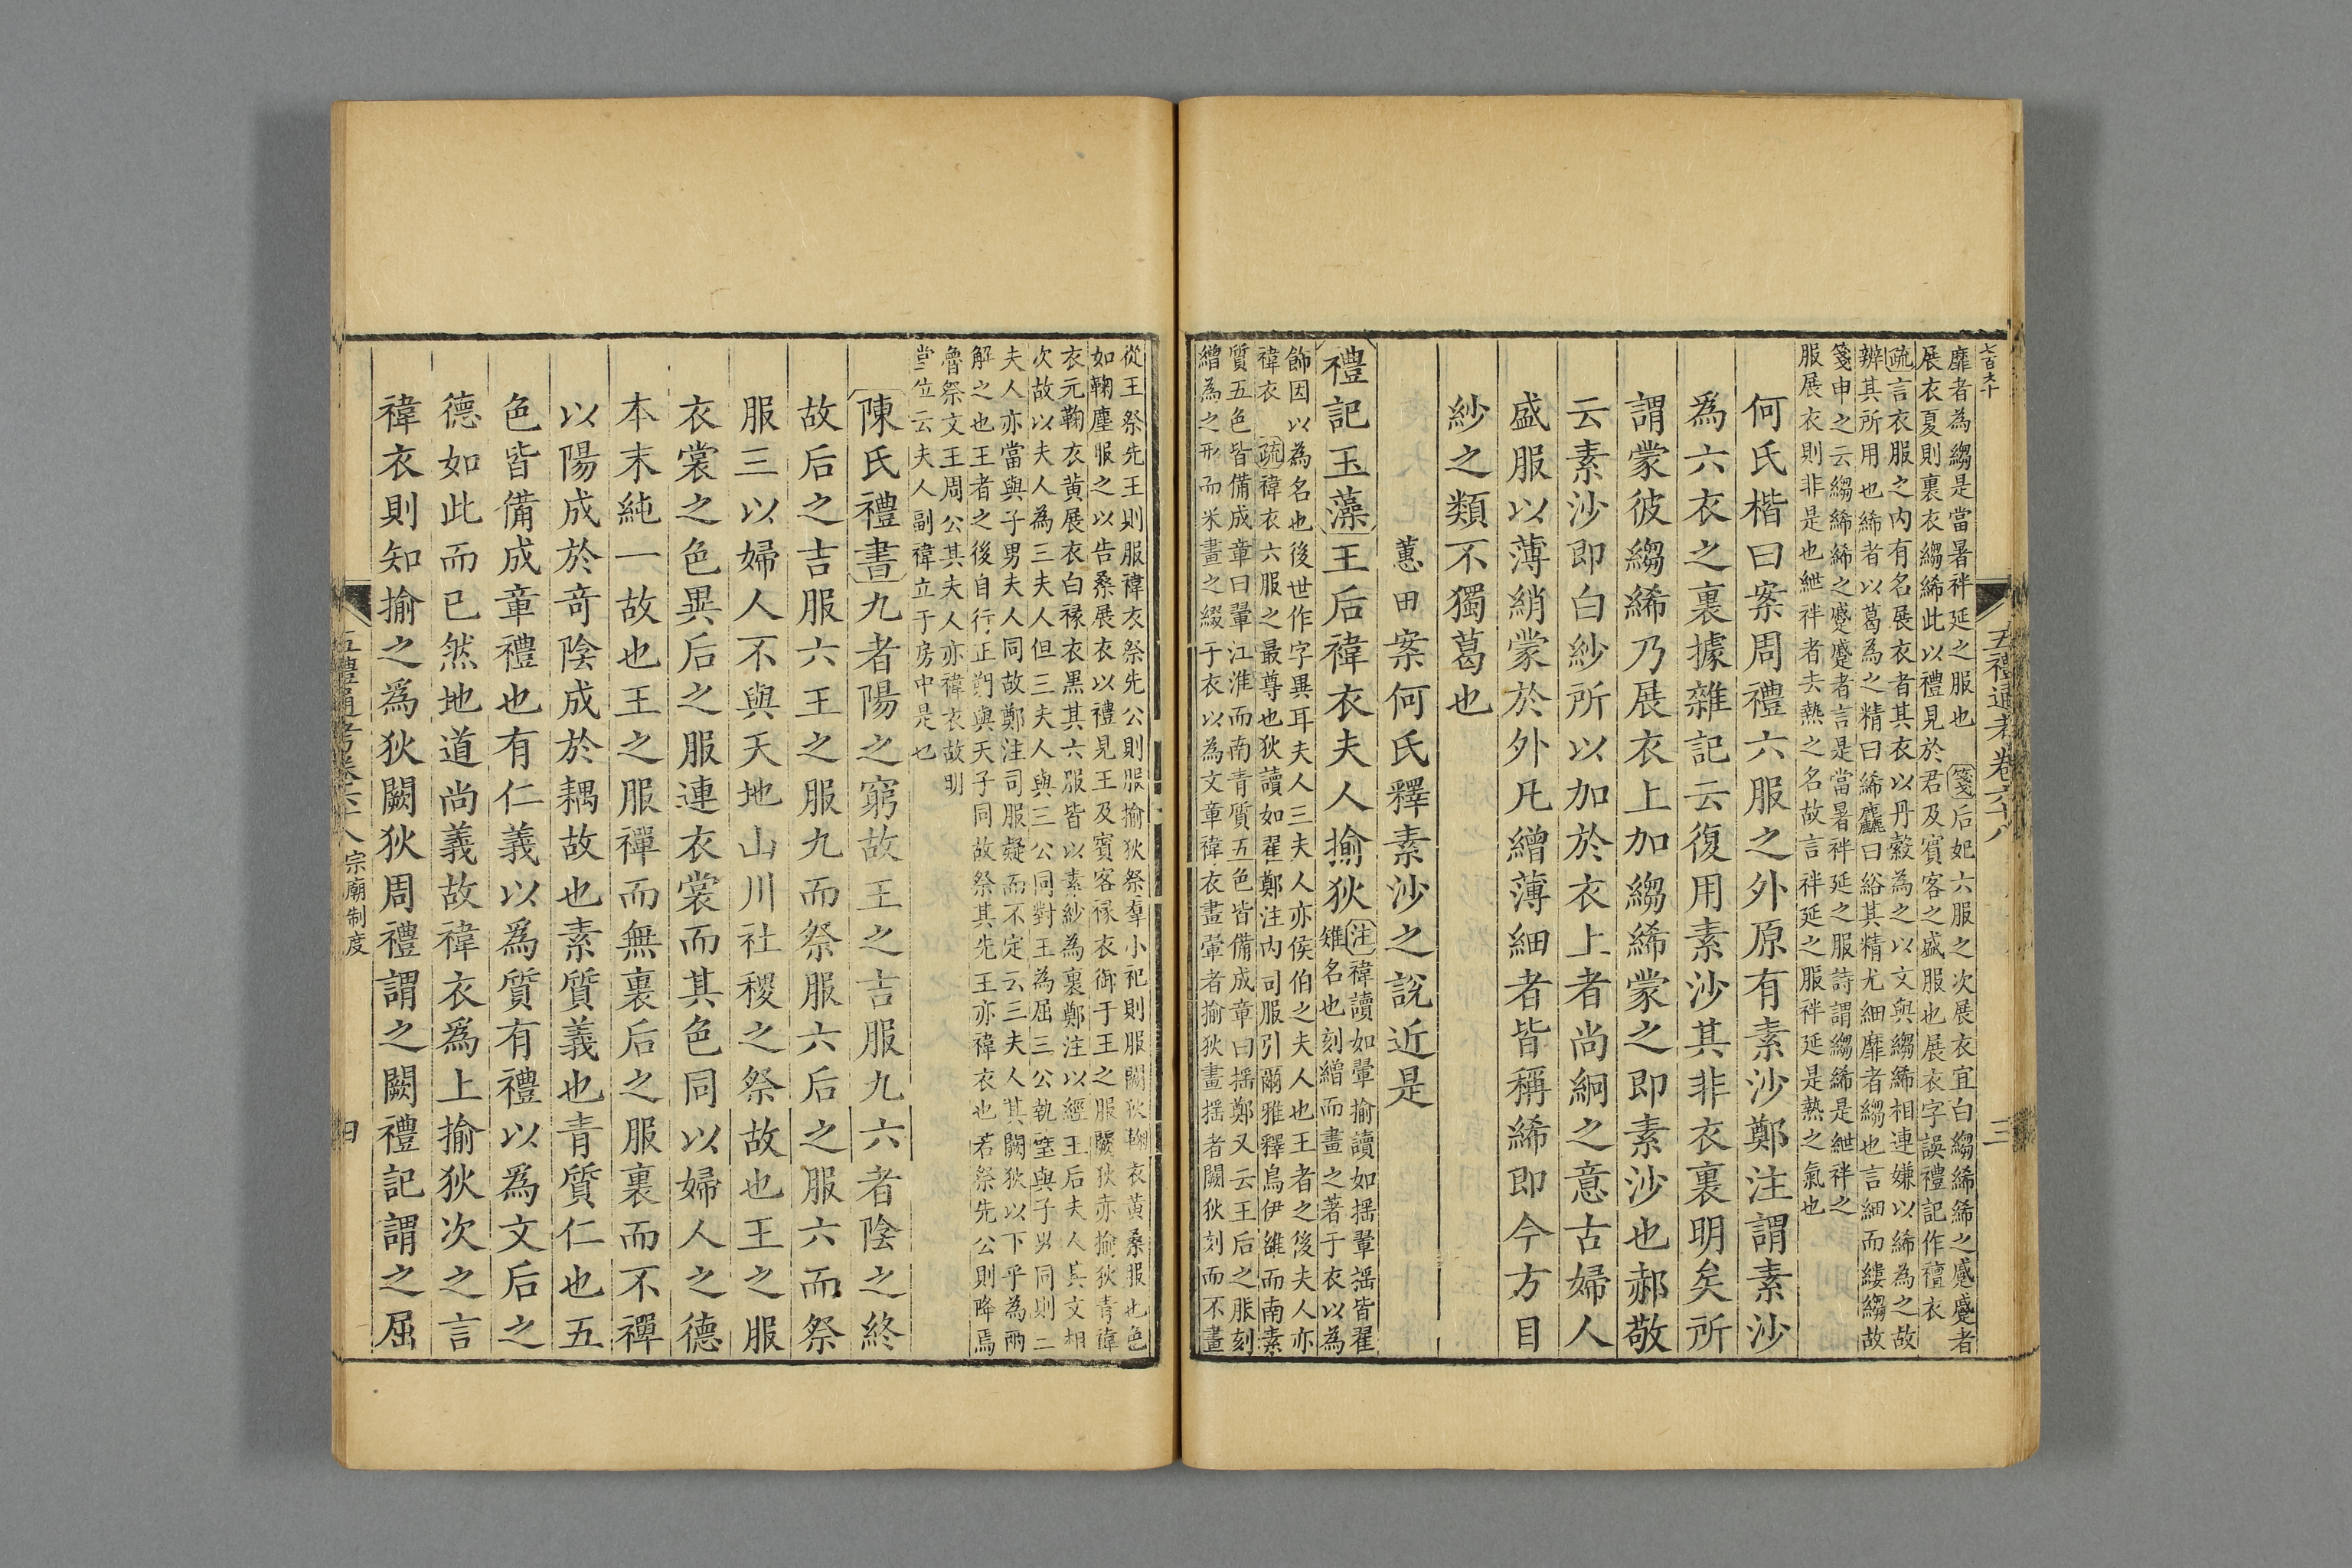 七百九十
五禮通考卷六十八
三
靡者為縐是當暑袢延之服也箋后妃六服之次展衣宜白縐絺絺之蹙蹙者
展衣夏則裏衣縐絺此以禮見於君及賓客之盛服也展衣字誤禮記作襢衣
疏言衣服之內有名展衣者其衣以丹縠為之以文與縐絺相連嫌以絺為之故
辨其所用也絺者以葛為之精曰絺麤曰綌其精尤細靡者縐也言細而縷縐故
箋申之云縐絺絺之蹙蹙者言是當暑袢延之服詩謂縐絺是紲袢之
服展衣則非是也紲袢者去熱之名故言袢延之服袢延是熱之氣也
何氏楷曰案周禮六服之外原有素沙鄭注謂素沙
為六衣之裏據雜記云復用素沙其非衣裏明矣所
謂蒙彼縐絺乃展衣上加縐絺蒙之即素沙也郝敬
云素沙即白紗所以加於衣上者尚絅之意古婦人
盛服以薄綃蒙於外凡繒薄細者皆稱絺即今方目
紗之類不獨葛也
蕙田案何氏釋素沙之說近是
禮記玉藻王后褘衣夫人揄狄
注褘讀如翬揄讀如搖翬搖皆翟
雉名也刻繒而畫之著于衣以為
飾因以為名也後世作字異耳夫人三夫人亦侯伯之夫人也王者之後夫人亦
褘衣 疏褘衣六服之最尊也狄讀如翟鄭注內司服引爾雅釋鳥伊雒而南素
質五色皆備成章曰翬江淮而南青質五色皆備成章曰搖鄭又云王后之服刻
繒為之形而采畫之綴于衣以為文章褘衣畫翬者揄狄畫搖者闕狄刻而不畫
從王祭先王則服褘衣祭先公則服揄狄祭羣小祀則服闕狄鞠衣黃桑服也色
如鞠塵服之以告桑展衣以禮見王及賓客祿衣御于王之服闕狄亦揄狄青褘
衣元鞠衣黃展衣白祿衣黑其六服皆以素紗為裏鄭注以經王后夫人其文相
次故以夫人為三夫人但三夫人與三公同對王為屈三公執璧與子男同則三
夫人亦當與子男夫人同故鄭注司服疑而不定云三夫人其闕狄以下乎為兩
解之也王者之後自行正朔與天子同故祭其先王亦褘衣也若祭先公則降焉
魯祭文王周公其夫人亦褘衣故明
堂位云夫人副褘立于房中是也
陳氏禮書九者陽之窮故王之吉服九六者陰之終
故后之吉服六王之服九而祭服六后之服六而祭
服三以婦人不與天地山川社稷之祭故也王之服
衣裳之色異后之服連衣裳而其色同以婦人之德
本末純一故也王之服襌而無裏后之服裏而不襌
以陽成於奇陰成於耦故也素質義也青質仁也五
色皆備成章禮也有仁義以為質有禮以為文后之
德如此而已然地道尚義故褘衣為上揄狄次之言
褘衣則知揄之為狄闕狄周禮謂之闕禮記謂之屈
五禮通考卷六十八 宗廟制度
四